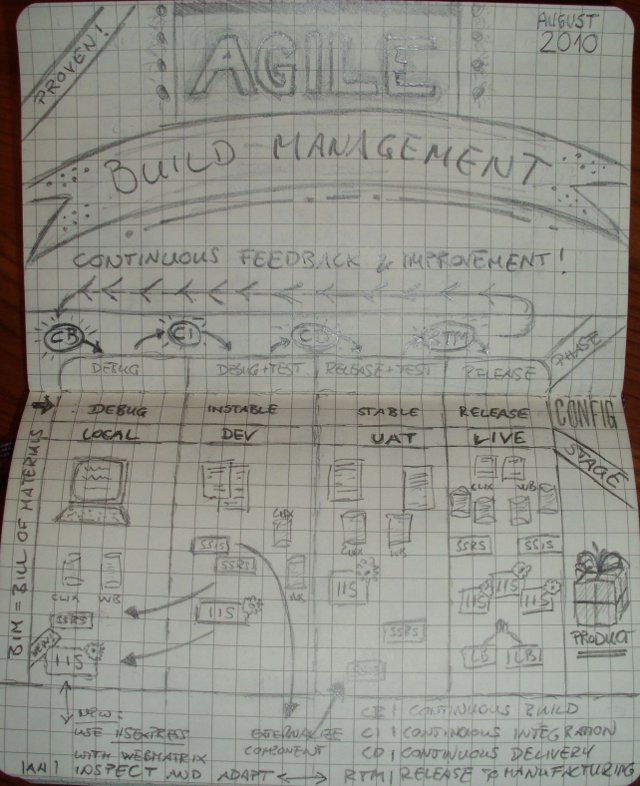 PROVEN!
AUGUST
2010
AGILE
BUILD MANAGEMENT
CONTINUOUS FEEDBACK & IMPROVEMENT!
CB CI CD RTM
PHASE
DEBUG DEBUG+TEST RELEASE+TEST RELEASE
DEBUG INSTABLE STABLE RELEASE CONFIG
LOCAL DEV UAT LIVE STAGE
BIM = BILL OF MATERIALS
CLIX WB
CLIX
SSIS SSRS
CLIX WB
SSRS SSIS
CLIX WB
SSRS
IIS
WB
IIS
IIS IIS IIS
NEW!
IIS
SSRS
LB
PRODUCT
NEW:
USE IISEXPRESS
WITH WEBMATRIX
EXTERNALIZE
COMPONENT
CB | CONTINUOUS BUILD
CI | CONTINUOUS INTEGRATION
CD | CONTINUOUS DELIVERY
IAA | INSPECT AND ADAPT RTM | RELEASE TO MANUFACTURING